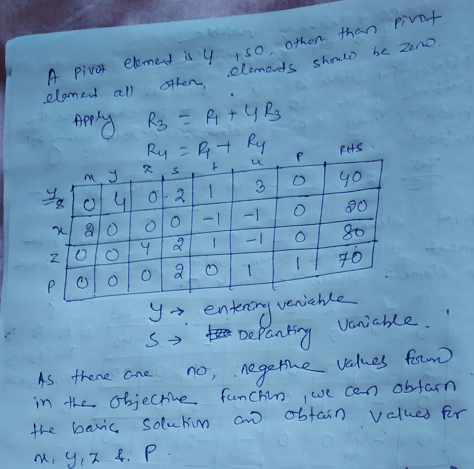 A pivot element is 4, so, other than pivot
element all other elements should be zero.
Apply R3 = R1 + 4R3
R4 = R1 + R4
x y z s t u P RHS
y 0 4 0 -2 1 3 0 40
x 2 0 0 0 -1 -1 0 20
z 0 0 4 2 1 -1 0 80
P 0 0 0 2 0 1 1 70
y → entering variable
s → Departing variable.
As there are no, negative values form
in the objective function, we can obtain
the basic solution and obtain values for
x, y, z & P.